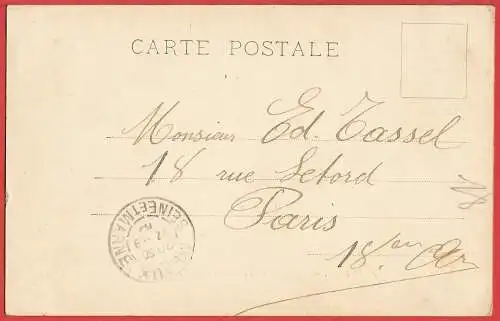 CARTE POSTALE
Monsieur Ed. Tassel
18 rue Letord
Paris
18
18. em Ar
SEINE ET MARNE